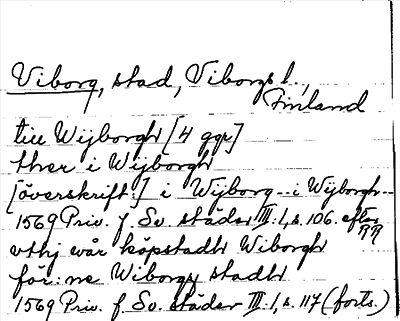 Viborg, stad, Viborgs l.,
Finland
till Wijborgh [4 ggr]
ther i Wijborgh
[överskrift:] i Wijborg.. i Wijborgh..
1569 Priv. f. Sv. städer III:1, s. 106. efter RR
vthj wår köpstadh Wiborgh
för:ne Wiborgz stadh
1569 Priv. f. Sv. städer III:1, s. 117 (forts.)